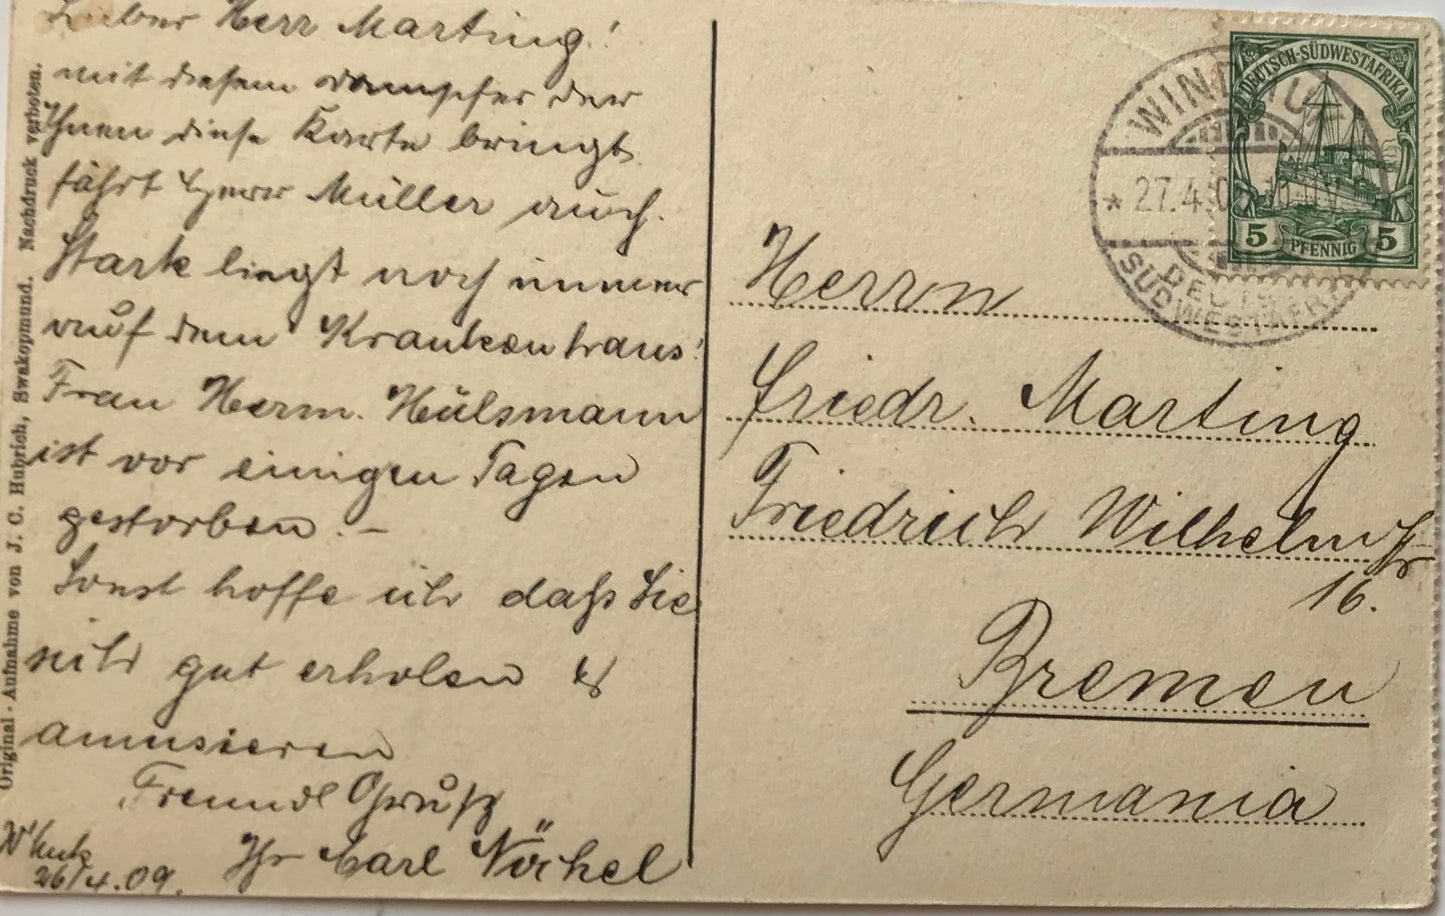 Lieber Herr Marting!
mit diesem dampfer der
Ihnen diese Karte bringt
fährt Herr Müller auch.
Stark liegt noch immer
auf dem Krankenhaus!
Frau Herm. Hülsmann
ist vor einigen Tagen
gestorben. –
Sonst hoffe ich daß Sie
sich gut erholen &
amusieren
Freundl Gruß
Ihr Carl Nöckel
W'huk
26/4.09.
Original-Aufnahme von J. C. Hubrich, Swakopmund. Nachdruck verboten.
DEUTSCH-SÜDWESTAFRIKA
5 PFENNIG 5
WINDHUK
* 27.4.0 10-11V
DEUTSCH
SÜDWESTAFRIKA
Herrn
Friedr. Marting
Friedrich Wilhelm Str
16.
Bremen
Germania